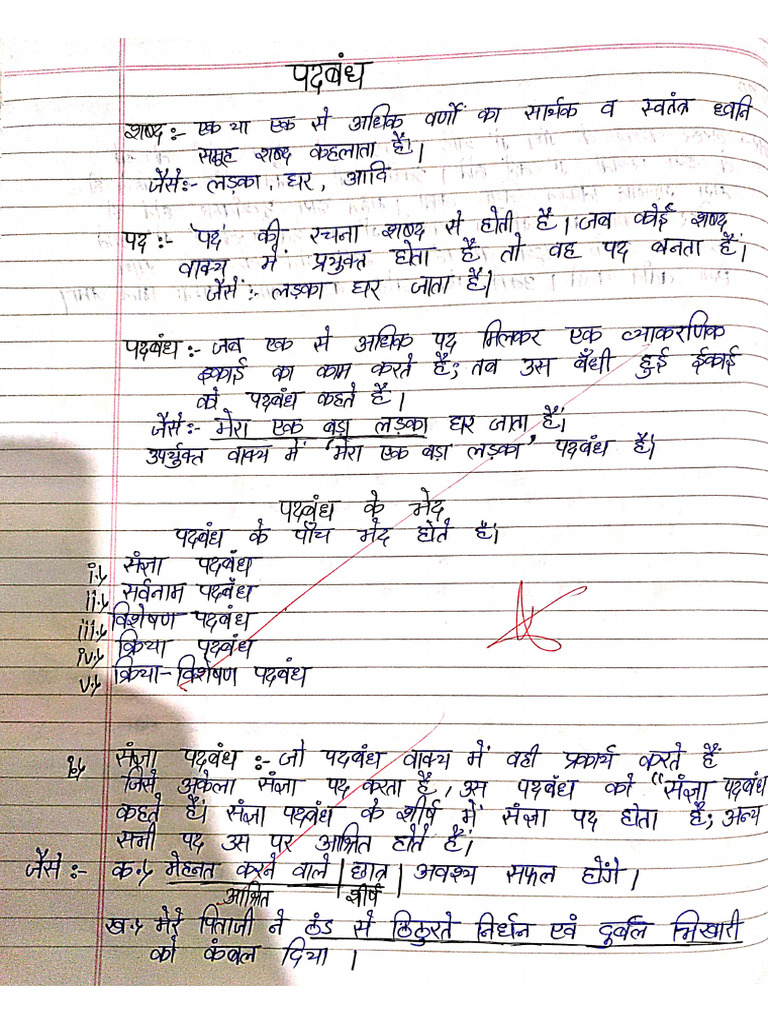 पदबंध
शब्द :- एक या एक से अधिक वर्णों का सार्थक व स्वतंत्र ध्वनि
समूह शब्द कहलाता है।
जैसे:- लड़का, घर, आदि
पद :- 'पद' की रचना शब्द से होती है। जब कोई शब्द
वाक्य में प्रयुक्त होता है तो वह पद बनता है।
जैसे :- लड़का घर जाता है।
पदबंध :- जब एक से अधिक पद मिलकर एक व्याकरणिक
इकाई का काम करते हैं; तब उस बँधी हुई ईकाई
को पदबंध कहते हैं।
जैसे:- मेरा एक बड़ा लड़का घर जाता है।
उपर्युक्त वाक्य में 'मेरा एक बड़ा लड़का' पदबंध है।
पदबंध के भेद
पदबंध के पाँच भेद होते हैं।
i.) संज्ञा पदबंध
ii.) सर्वनाम पदबंध
iii.) विशेषण पदबंध
iv.) क्रिया पदबंध
v.) क्रिया-विशेषण पदबंध
संज्ञा पदबंध :- जो पदबंध वाक्य में वही प्रकार्य करते हैं
जिसे अकेला संज्ञा पद करता है, उस पदबंध को "संज्ञा पदबंध
कहते हैं। संज्ञा पदबंध के शीर्ष में संज्ञा पद होता है; अन्य
सभी पद उस पर आश्रित होते हैं।
जैसे :- क.) मेहनत करने वाले | छात्र | अवश्य सफल होंगे।
आश्रित शीर्ष
ख.) मेरे पिताजी ने ठंड से ठिठुरते निर्धन एवं दुर्बल भिखारी
को कंबल दिया।